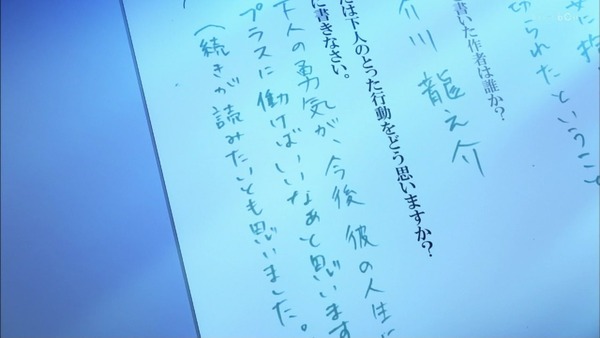 女に
切られたということ
書いた作者は誰か？
介川 龍之介
たは下人のとった行動をどう思いますか？
に書きなさい。
下人の勇気が、今後 彼の人生に
プラスに働けばいいなあと思います
（続きが読みたいとも思いました。